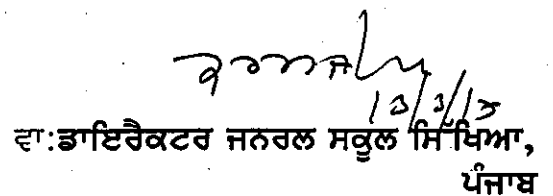 13/3/15
ਵਾ:ਡਾਇਰੈਕਟਰ ਜਨਰਲ ਸਕੂਲ ਸਿੱਖਿਆ,
ਪੰਜਾਬ